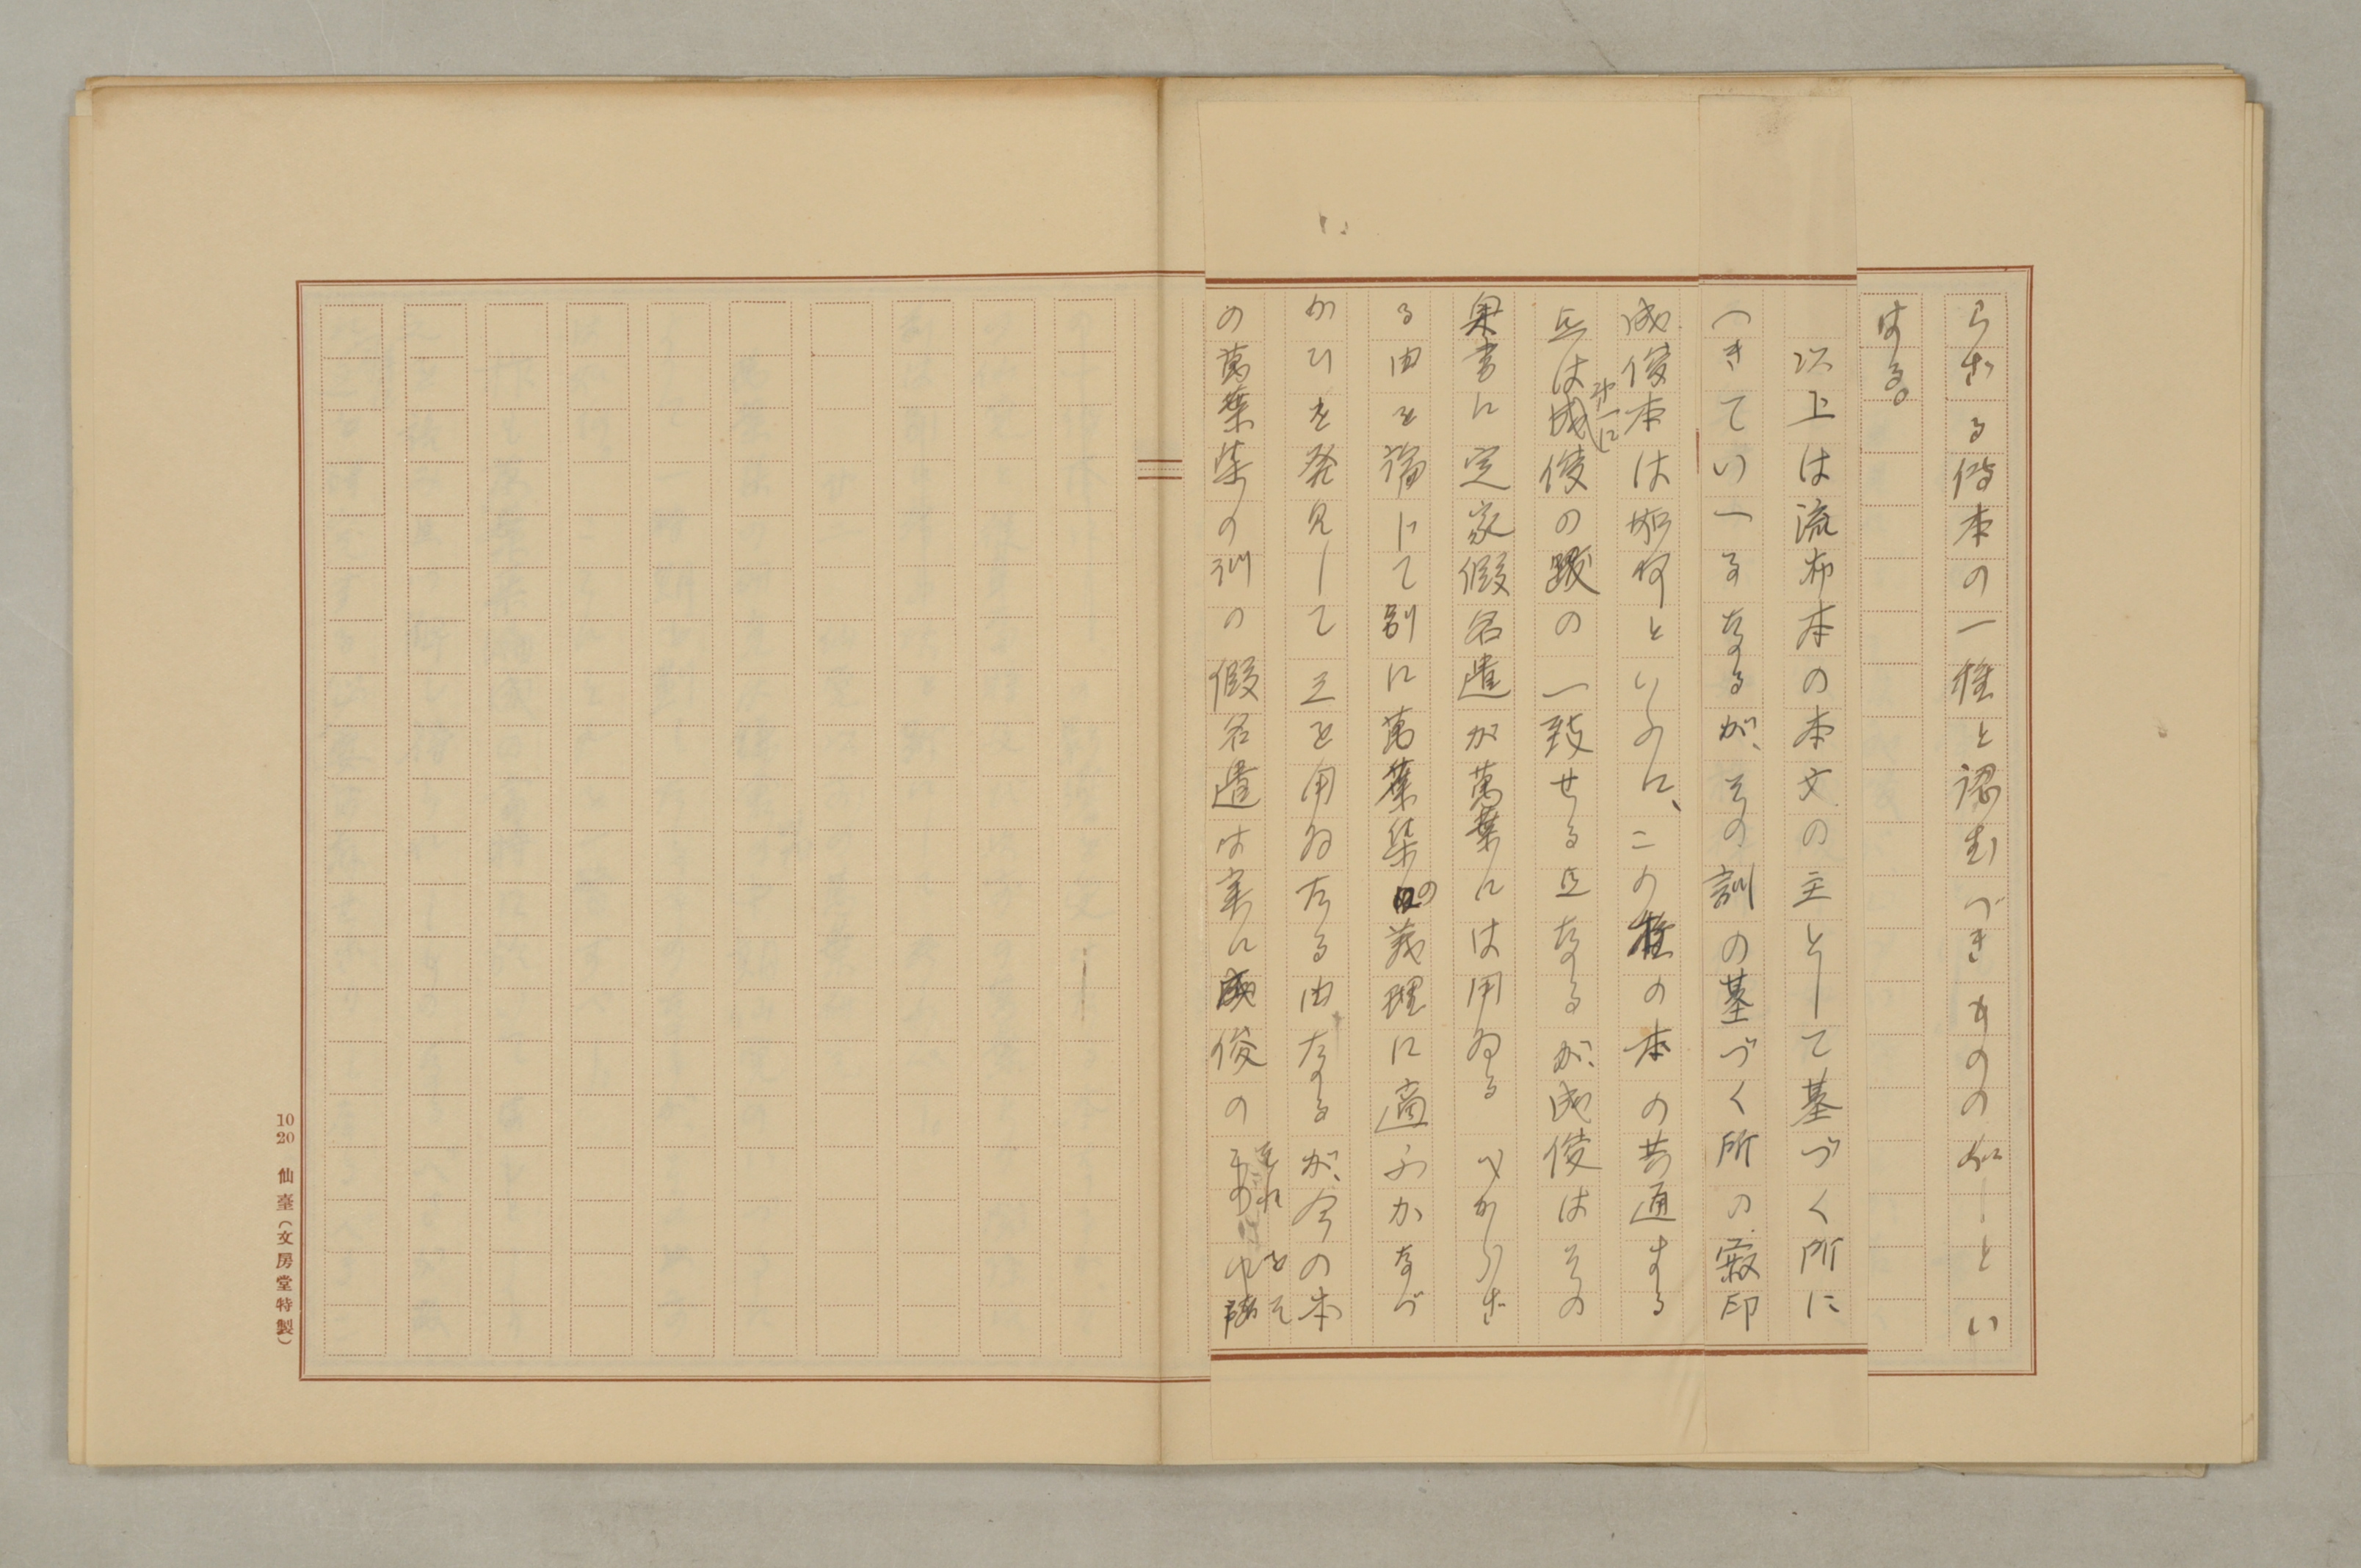 らざる傳本の一種と認むべきものの如しとい
はる。
以上は流布本の本文の主として基づく所に
つきていへるなるが、その訓の基づく所の寂印
成俊本は如何といふに、この種の本の共通する
点は第一に成俊の跋の一致せる点なるが、成俊はその
奥書に定家假名遣が萬葉には用ゐるべからざ
る由を論じて別に萬葉集の義理に適ふかなづ
かひを発見して之を用ゐたる由なるが、今の本
の萬葉集の訓の假名遣は実に成俊の
10 20 仙臺(文房堂特製)